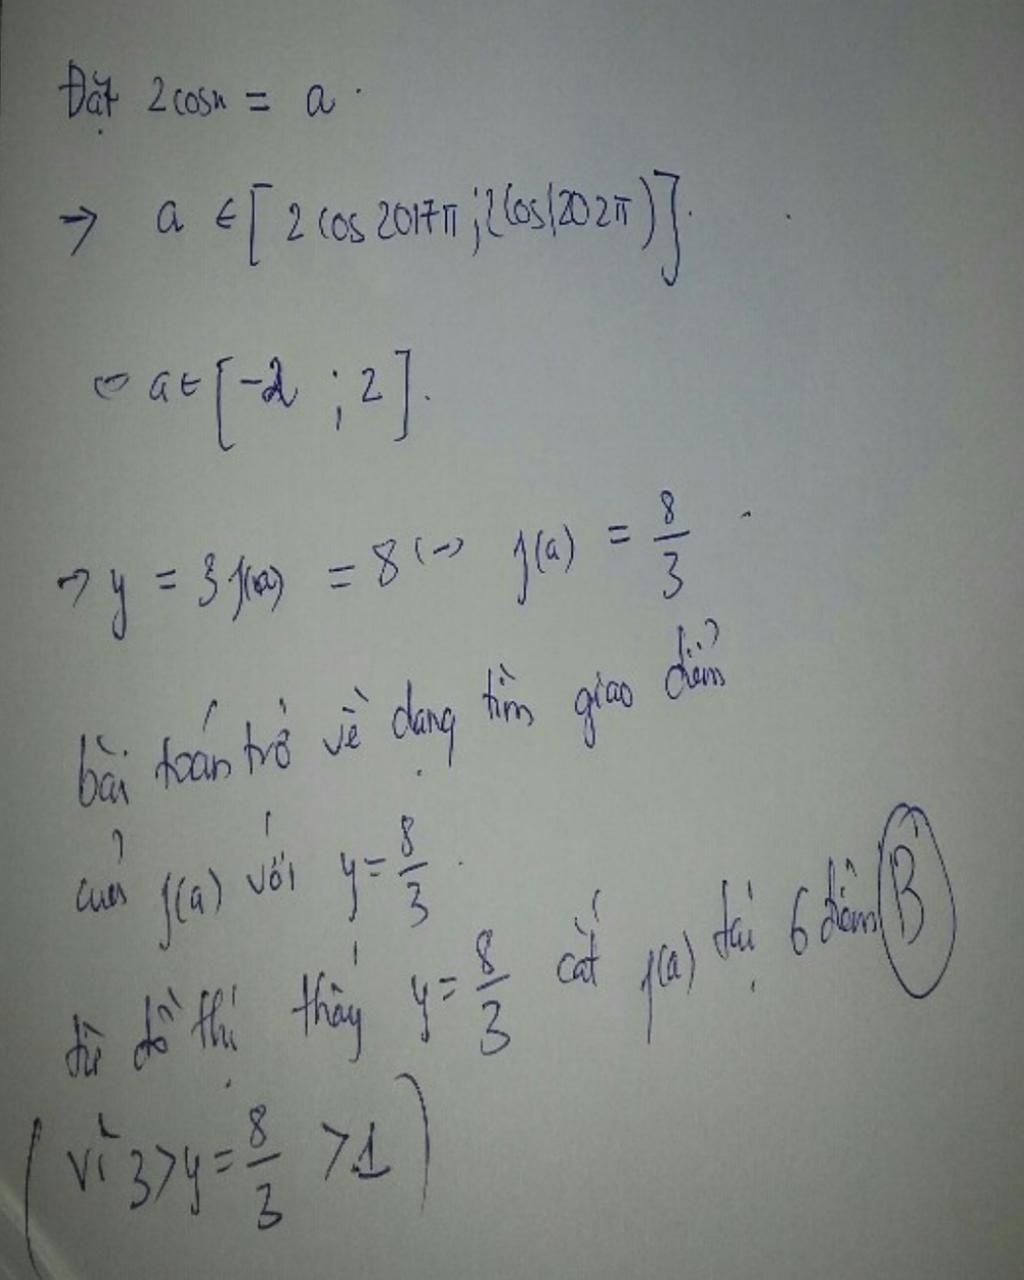 Đặt 2cosx = a.
→ a ∈ [2 cos 2017π ; 2cos(202π)].
⇔ a ∈ [-2 ; 2].
→ y = 3f(a) = 8 ⇔ f(a) = 8/3.
bài toán trở về dạng tìm giao điểm
của f(a) với y = 8/3.
từ đồ thị thấy y = 8/3 cắt f(a) tại 6 điểm B
(vì 3 > y = 8/3 > 1)